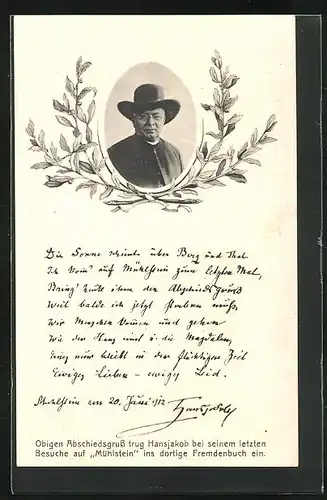 Die Sonne scheint über Berg und Thal
Ich komm' auf Mühlstein zum letzten Mal,
Bring' heut ihm den Abschiedsgruß
Weil balde ich jetzt sterben muß.
Wir Menschen kommen und gehen
Wie der Hans und die Magdalen,
Eines nur bleibt in der flüchtigen Zeit
Ewiges Lieben - ewiges Leid.
Mühlstein am 20. Juni 1912 Hansjakob
Obigen Abschiedsgruß trug Hansjakob bei seinem letzten
Besuche auf „Mühlstein" ins dortige Fremdenbuch ein.